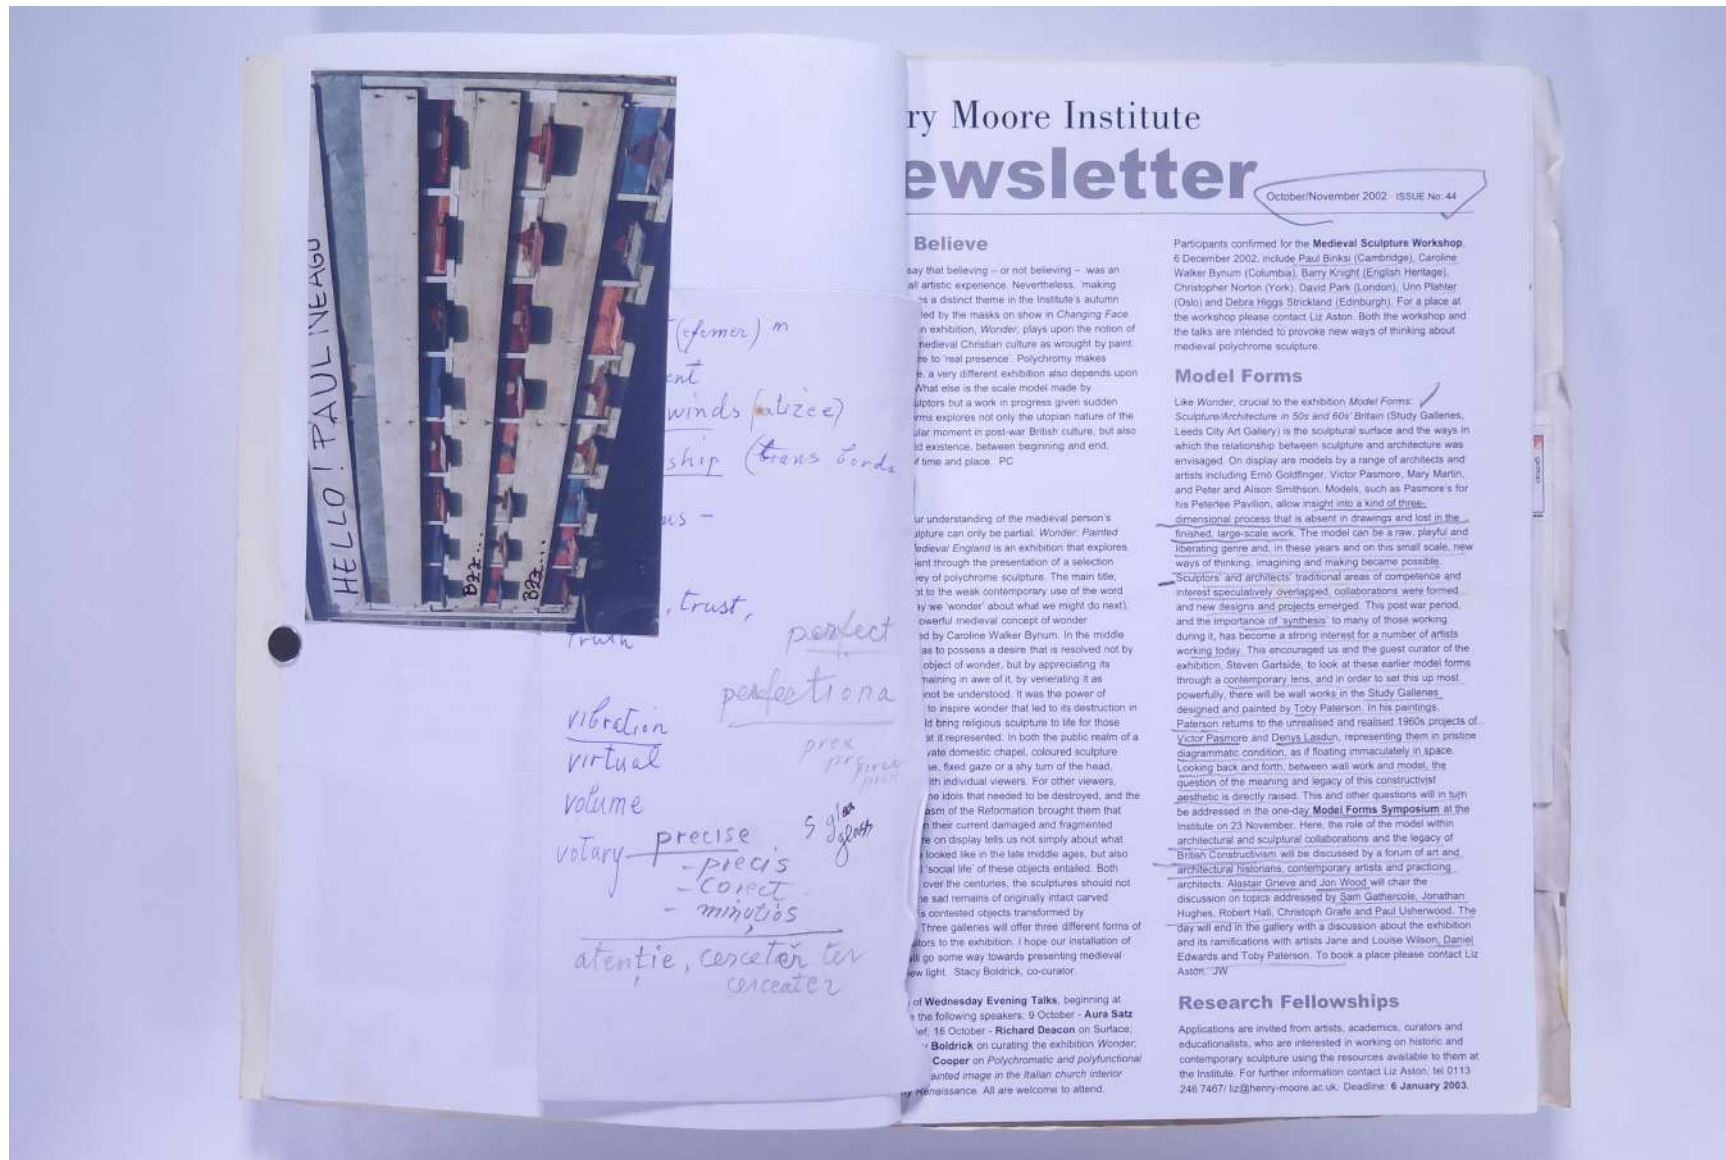 HELLO! PAUL NEAGU
Bzz...
Bzz...
(efemer) m
ent
winds (alizee)
ship (trans borda
us -
, trust,
Truth
perfect
perfectiona
vibration
virtual
volume
votary
precise
- precis
- corect
- minutios
5 glass
glosh
atenție,
ry Moore Institute
ewsletter
October/November 2002 ISSUE No: 44
Believe
say that believing – or not believing – was an
all artistic experience. Nevertheless, 'making
as a distinct theme in the Institute's autumn
led by the masks on show in Changing Face.
n exhibition, Wonder, plays upon the notion of
medieval Christian culture as wrought by paint
re to 'real presence'. Polychromy makes
e, a very different exhibition also depends upon
What else is the scale model made by
ulptors but a work in progress given sudden
rms explores not only the utopian nature of the
ular moment in post-war British culture, but also
id existence, between beginning and end,
f time and place. PC
ur understanding of the medieval person's
ulpture can only be partial. Wonder: Painted
Medieval England is an exhibition that explores
ent through the presentation of a selection
ey of polychrome sculpture. The main title,
ot to the weak contemporary use of the word
ay we 'wonder' about what we might do next),
owerful medieval concept of wonder
ed by Caroline Walker Bynum. In the middle
as to possess a desire that is resolved not by
object of wonder, but by appreciating its
maining in awe of it, by venerating it as
not be understood. It was the power of
to inspire wonder that led to its destruction in
ld bring religious sculpture to life for those
at it represented. In both the public realm of a
vate domestic chapel, coloured sculpture
se, fixed gaze or a shy turn of the head,
ith individual viewers. For other viewers,
ne idols that needed to be destroyed, and the
asm of the Reformation brought them that
n their current damaged and fragmented
re on display tells us not simply about what
looked like in the late middle ages, but also
'social life' of these objects entailed. Both
over the centuries, the sculptures should not
e sad remains of originally intact carved
s contested objects transformed by
Three galleries will offer three different forms of
itors to the exhibition. I hope our installation of
ill go some way towards presenting medieval
ew light. Stacy Boldrick, co-curator.
of Wednesday Evening Talks, beginning at
e the following speakers: 9 October - Aura Satz
ief; 16 October - Richard Deacon on Surface;
Boldrick on curating the exhibition Wonder;
Cooper on Polychromatic and polyfunctional
ainted image in the Italian church interior
y Renaissance. All are welcome to attend.
Participants confirmed for the Medieval Sculpture Workshop,
6 December 2002, include Paul Binksi (Cambridge), Caroline
Walker Bynum (Columbia), Barry Knight (English Heritage),
Christopher Norton (York), David Park (London), Unn Plahter
(Oslo) and Debra Higgs Strickland (Edinburgh). For a place at
the workshop please contact Liz Aston. Both the workshop and
the talks are intended to provoke new ways of thinking about
medieval polychrome sculpture.
Model Forms
Like Wonder, crucial to the exhibition Model Forms:
Sculpture/Architecture in 50s and 60s' Britain (Study Galleries,
Leeds City Art Gallery) is the sculptural surface and the ways in
which the relationship between sculpture and architecture was
envisaged. On display are models by a range of architects and
artists including Ernö Goldfinger, Victor Pasmore, Mary Martin,
and Peter and Alison Smithson. Models, such as Pasmore's for
his Peterlee Pavilion, allow insight into a kind of three-
dimensional process that is absent in drawings and lost in the
finished, large-scale work. The model can be a raw, playful and
liberating genre and, in these years and on this small scale, new
ways of thinking, imagining and making became possible.
Sculptors' and architects' traditional areas of competence and
interest speculatively overlapped, collaborations were formed
and new designs and projects emerged. This post war period,
and the importance of 'synthesis' to many of those working
during it, has become a strong interest for a number of artists
working today. This encouraged us and the guest curator of the
exhibition, Steven Gartside, to look at these earlier model forms
through a contemporary lens, and in order to set this up most
powerfully, there will be wall works in the Study Galleries
designed and painted by Toby Paterson. In his paintings,
Paterson returns to the unrealised and realised 1960s projects of
Victor Pasmore and Denys Lasdun, representing them in pristine
diagrammatic condition, as if floating immaculately in space.
Looking back and forth, between wall work and model, the
question of the meaning and legacy of this constructivist
aesthetic is directly raised. This and other questions will in turn
be addressed in the one-day Model Forms Symposium at the
Institute on 23 November. Here, the role of the model within
architectural and sculptural collaborations and the legacy of
British Constructivism will be discussed by a forum of art and
architectural historians, contemporary artists and practicing
architects. Alastair Grieve and Jon Wood will chair the
discussion on topics addressed by Sam Gathercole, Jonathan
Hughes, Robert Hall, Christoph Grafe and Paul Usherwood. The
day will end in the gallery with a discussion about the exhibition
and its ramifications with artists Jane and Louise Wilson, Daniel
Edwards and Toby Paterson. To book a place please contact Liz
Aston. JW
Research Fellowships
Applications are invited from artists, academics, curators and
educationalists, who are interested in working on historic and
contemporary sculpture using the resources available to them at
the Institute. For further information contact Liz Aston, tel 0113
246 7467/ liz@henry-moore.ac.uk. Deadline: 6 January 2003.